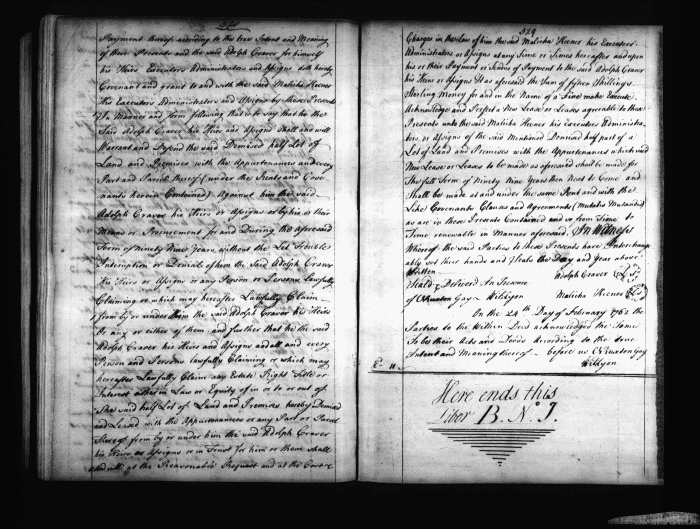 Payment thereof according to the true Intent and Meaning
of these Presents and the said Adolph Graver for himself
his Heirs Executors Administrators and Assigns doth hereby
Covenant and grant to and with the said Malicha Keener
His Executors Administrators and Assigns by these Presents
In Manner and form following that is to say that he the
Said Adolph Graver his Heirs and Assigns shall and will
Warrant and Defend the said Demised half Lot of
Land and Premises with the Appurtenances and every
Part and Parcel thereof (under the Rents and Cove
nants herein Contained) Against him the said
Adolph Graver his Heirs or Assigns or by his or their
Means or Procurement for and During the aforesaid
Term of Ninety Nine Years without the Let Trouble
Interuption or Denial of him the Said Adolph Graver
his Heirs or Assigns or any Person or Persons Lawfully
Claiming or which may hereafter Lawfully Claim
from by or under him the said Adolph Graver his Heirs
or any or either of them and further that he the said
Adolph Graver his Heirs and Assigns and all and every
Person and Persons lawfully Claiming or which may
hereafter Lawfully Claim any Estate Right Title or
Interest either in Law or Equity of in or to or out of
The said half Lot of Land and Premises hereby Demised
and Leased with the Appurtenances or any Part or Parcel
thereof from by or under him the said Adolph Graver
his Heirs or Assigns or in Trust for him or them shall
and will at the Reasonable Request and at the Cost &
529
Charges in the Law of him the said Malicha Keener his Executors
Administrators or Assigns at any time or times hereafter and upon
his or their Payment or Tender of Payment to the Said Adolph Graver
his Heirs or Assigns As aforesaid the Sum of fifteen Shillings
Sterling Money for and in the Name of a Fine make Execute
Acknowledge and Perfect a New Lease or Leases agreeable to these
Presents unto the said Malicha Keener his Executors Administra
tors or Assigns of the said Mentioned Demised half part of a
Lot of Land and Premises with the Appurtenances which said
New Lease or Leases to be made as aforesaid shall be made for
The full Term of Ninety Nine Years then Next to Come and
Shall be made at and under the same Rent and with the
Like Covenants Clauses and Agreements (Mutatis Mutandis)
as are in these Presents Contained and so from Time to
Time renewable in Manner aforesaid. In Witness
Whereof the said Parties to these Presents have Interchange
ably set their hands and Seals the Day and Year above
Written
Adolph Graver
Seald & Delivered In Presence
of N Ruxton Gay = Wilkyon
Malicha Keener
On the 24th Day of February 1762 the
Parties to the Within Deed acknowledged the Same
To be their Acts and Deeds According to the true
Intent and Meaning thereof - before us N Ruxton Gay
Wilkyon
Here ends this
Liber B. No. I.